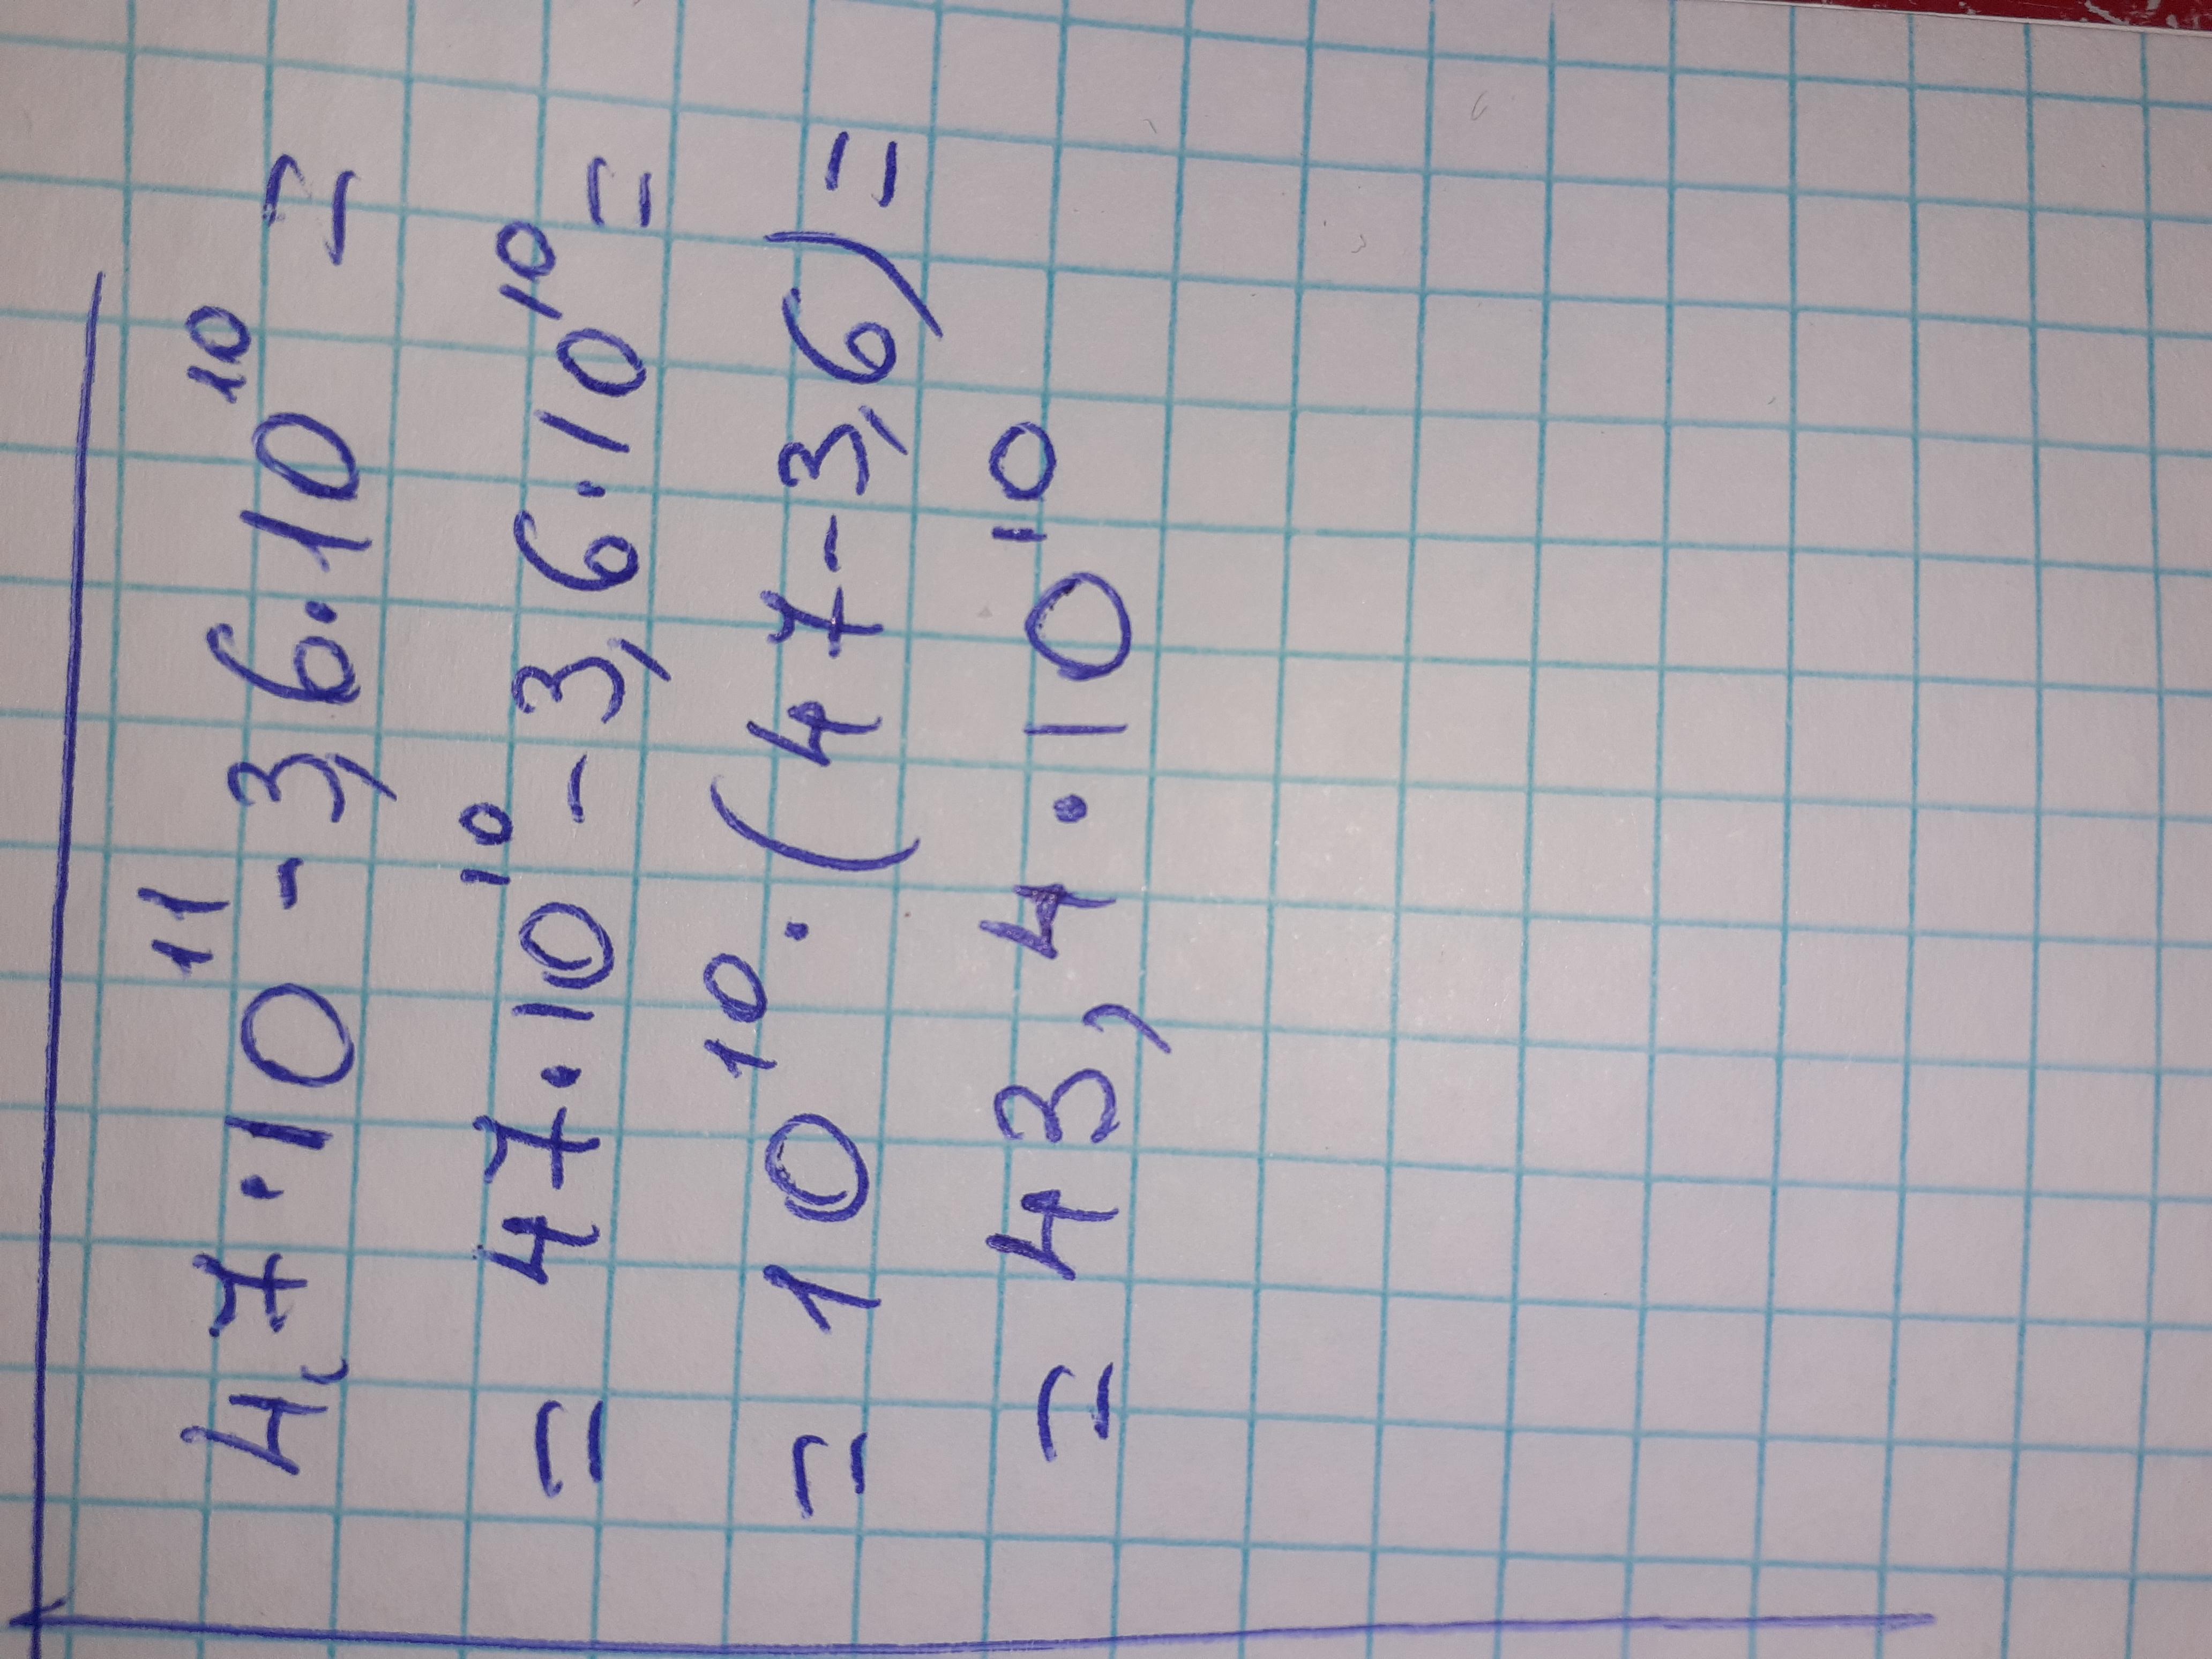 4,7·10¹¹-3,6·10¹⁰=
=47·10¹⁰-3,6·10¹⁰=
=10¹⁰·(47-3,6)=
=43,4·10¹⁰